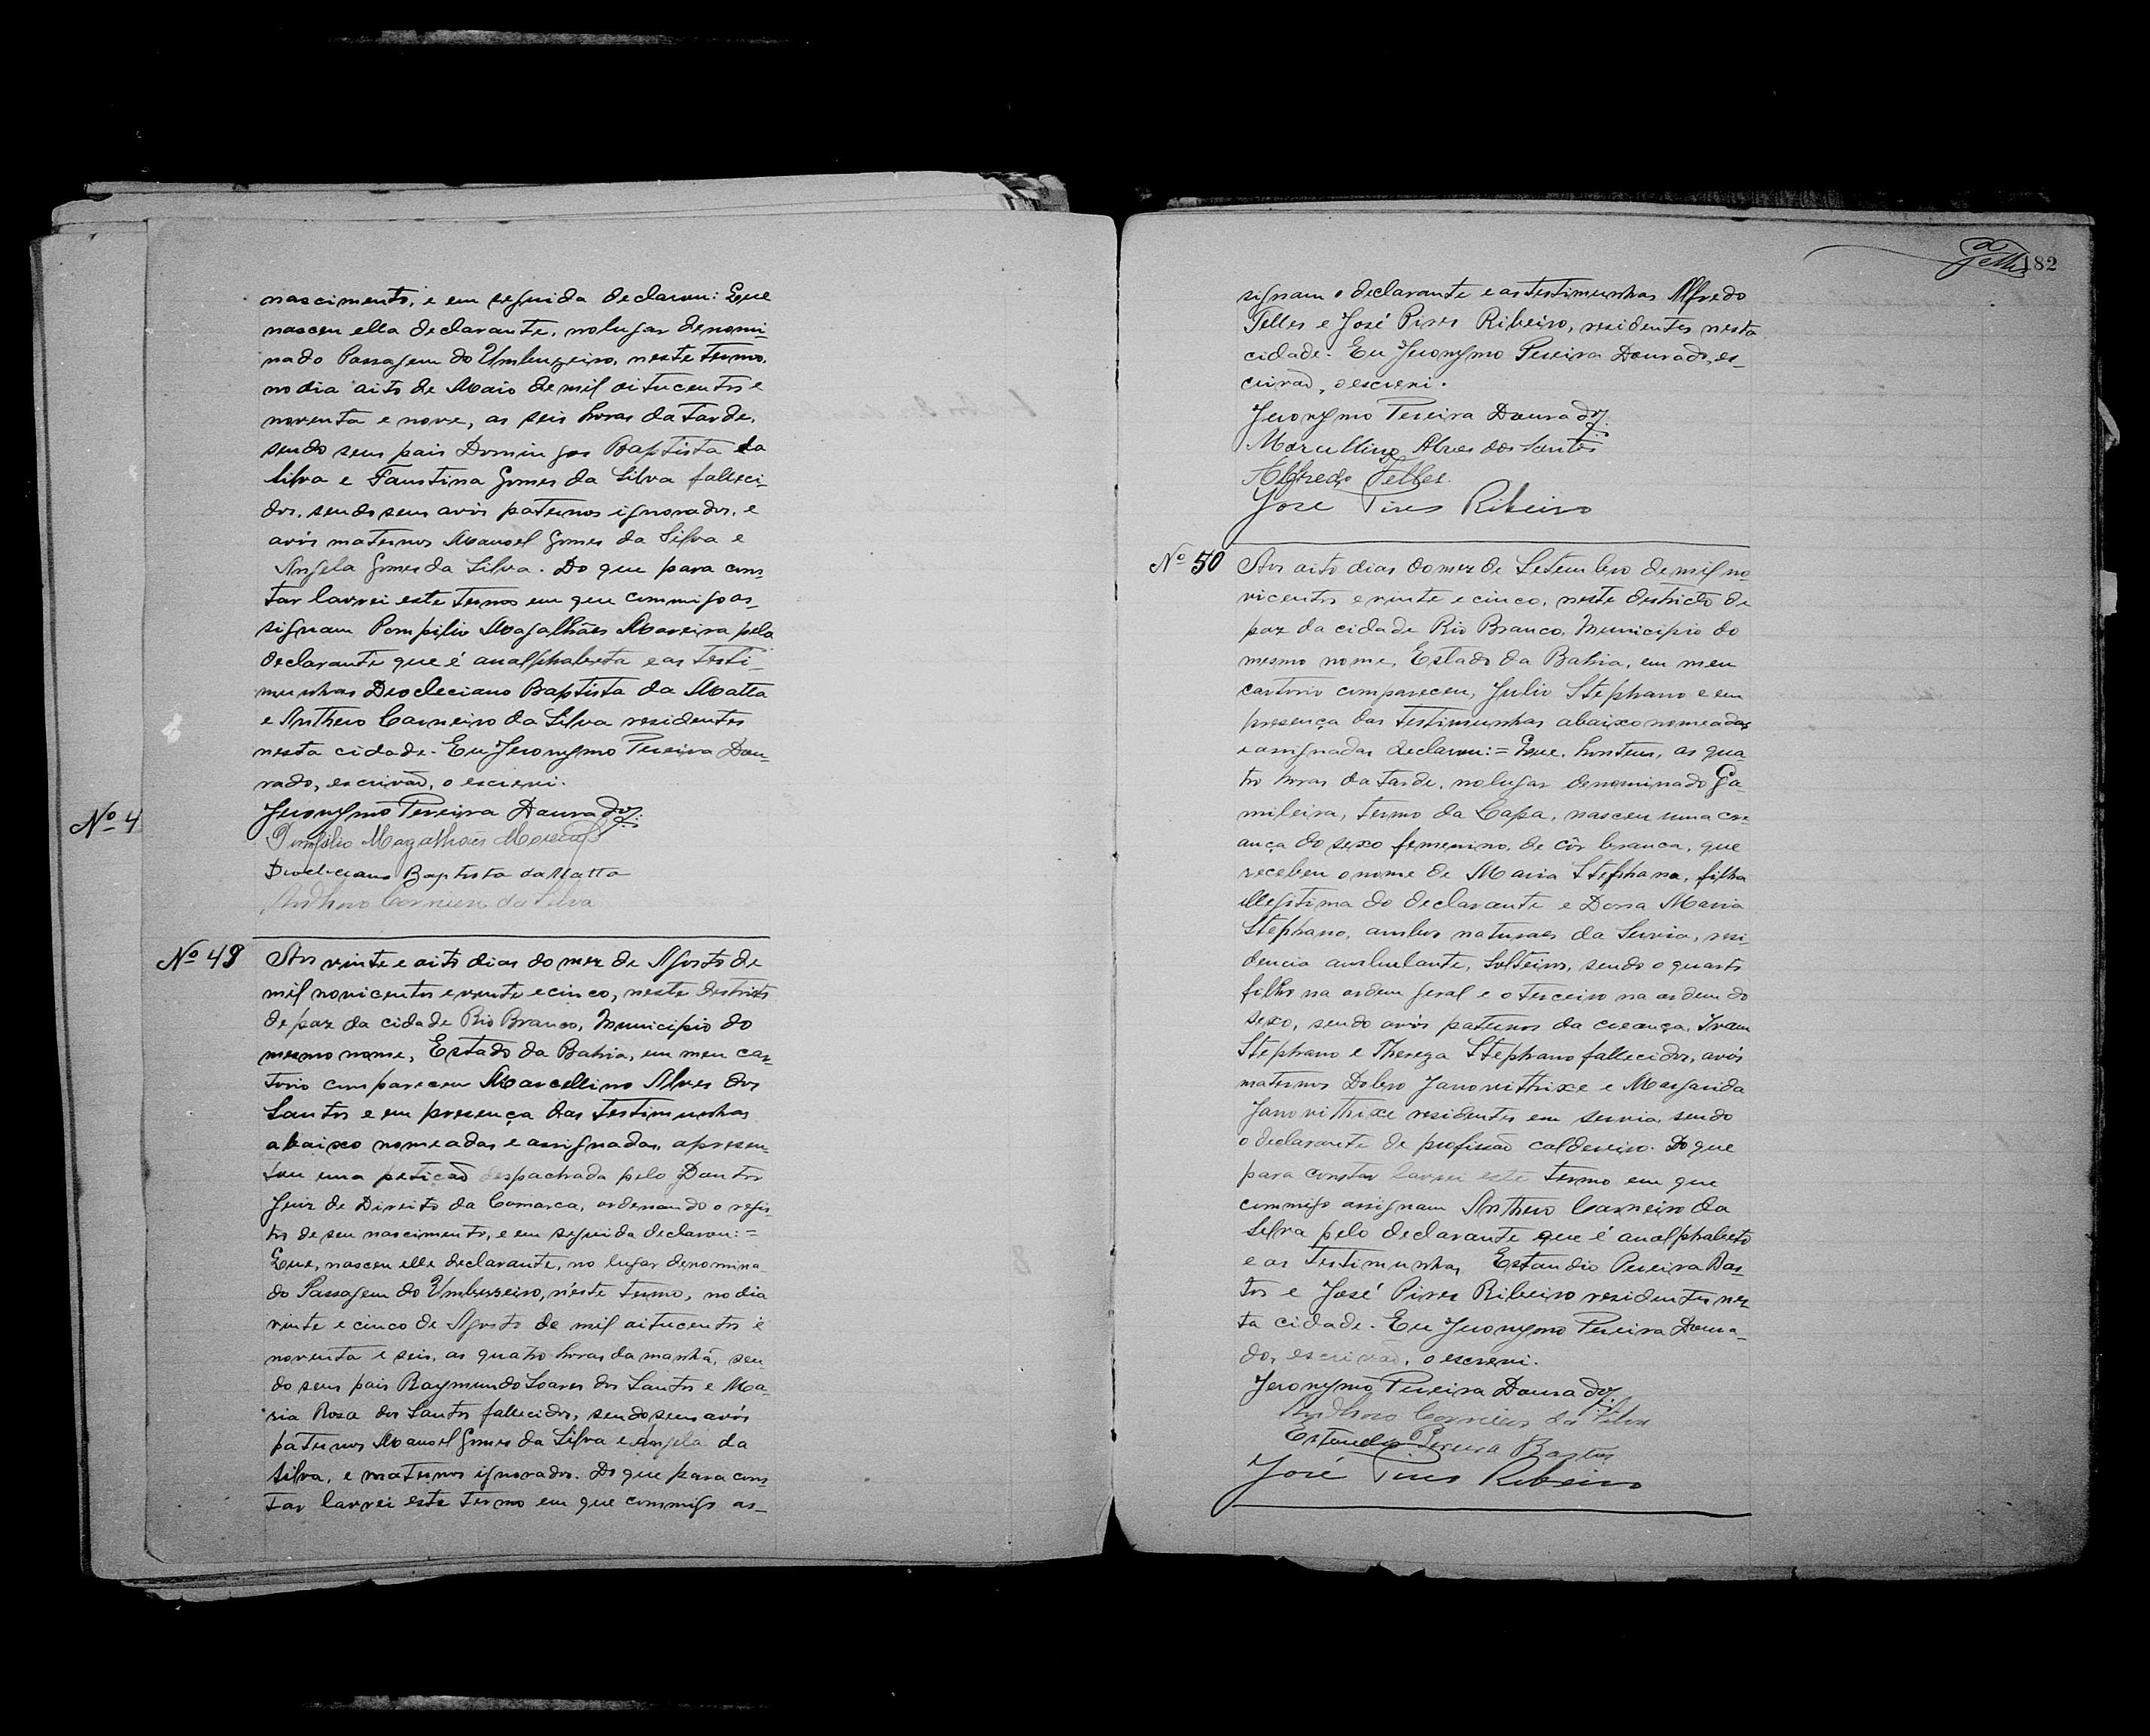 nascimento, e em seguida declarou: Que
nasceu ella declarante, no lugar denomi-
nado Passagem do Umbuzeiro, neste termo,
no dia oito de Maio de mil oitucentos e
noventa e nove, as seis horas da tarde,
sendo seus pais Domingos Baptista da
Silva e Faustina Gomes da Silva falleci-
dos, sendo seus avós paternos ignorados, e
avós maternos Manoel Gomes da Silva e
Angela Gomes da Silva. Do que para cons-
tar lavrei este termo em que commigo as-
signam Pompilio Magalhães Moreira pela
declarante que é analphabeta e as testi-
munhas Diocleciano Baptista da Matta
e Anthero Carneiro da Silva residentes
nesta cidade. Eu Jeronymo Pereira Dou-
rado, escrivão, o escrevi.
Jeronymo Pereira Dourado
Pompilio Magalhães Moreira
Diocleciano Baptista da Matta
Anthero Carneiro da Silva
Nº 4
Nº 49
Aos vinte e oito dias do mez de Agosto de
mil novicentos e vinte e cinco, neste districto
de paz da cidade Rio Branco, Municipio do
mesmo nome, Estado da Bahia, em meu car-
torio compareceu Marcellino Alves dos
Santos e em presença das testimunhas
abaixo nomeadas e assignadas, apresen-
tou uma petição despachada pelo Doutor
Juiz de Direito da Comarca, ordenando o regis-
tro de seu nascimento, e em seguida declarou: =
Que, nasceu elle declarante, no lugar denomina-
do Passagem do Umbuzeiro, néste termo, no dia
vinte e cinco de Agosto de mil oitucentos e
noventa e seis, as quatro horas da manhã, sen-
do seus pais Raymundo Soares dos Santos e Ma-
ria Rosa dos Santos fallecidos, sendo seus avós
paternos Manoel Gomes da Silva e Angela da
Silva, e maternos ignorados. Do que para cons-
tar lavrei este termo em que commigo as-
182
signam o declarante e as testimunhas Alfredo
Telles e José Pires Ribeiro, residentes nesta
cidade. Eu Jeronymo Pereira Dourado, es-
crivão, o escrevi.
Jeronymo Pereira Dourado
Marcellino Alves dos Santos
Alfredo Telles
José Pires Ribeiro
Nº 50
Aos oito dias do mez de Setembro de mil no-
vicentos e vinte e cinco, neste districto de
paz da cidade Rio Branco, Municipio do
mesmo nome, Estado da Bahia, em meu
cartorio compareceu, Julio Stephano e em
presença das testimunhas abaixo nomeadas
e assignadas declarou: = Que, hontem, as qua-
tro horas da tarde, no lugar denominado Ga-
mileira, termo da Lapa, nasceu uma cre-
ança do sexo femenino, de côr branca, que
recebeu o nome de Maria Stephana, filha
illegitima do declarante e Dona Maria
Stephano, ambos naturaes da Servia, resi-
dencia ambulante, solteiros, sendo o quarto
filho na ordem geral e o terceiro na ordem do
sexo, sendo avós paternos da creança, Ivam
Stephano e Thereza Stephano fallecidos, avós
maternos Dobro Janovithixe e Margarida
Janovithixe residentes em Servia, sendo
o declarante de profissão caldeireiro. Do que
para constar lavrei este termo em que
commigo assignam Anthero Carneiro da
Silva pelo declarante que é analphabeto
e as testimunhas Estandio Pereira Bas-
tos e José Pires Ribeiro residentes nes-
ta cidade. Eu Jeronymo Pereira Doura-
do, escrivão, o escrevi.
Jeronymo Pereira Dourado
Anthero Carneiro da Silva
Estandio Pereira Bastos
José Pires Ribeiro